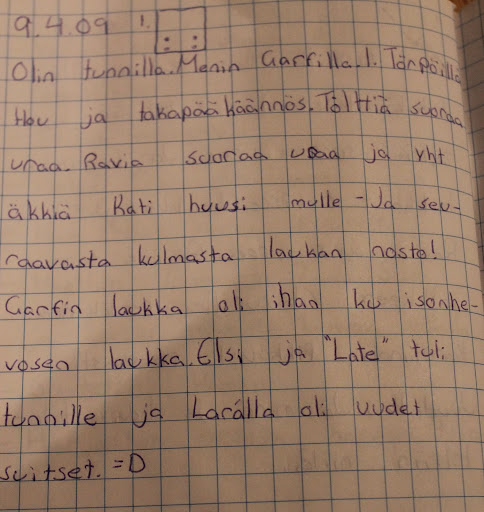 9.4.09 1.
Olin tunnilla. Menin Garfilla. 1. Tärpöillä
Hov ja takapääkäännös. Tölttiä suoraa
uraa. Ravia suoraa uraa ja yht
äkkiä Kati huusi mulle - Ja seu-
raavasta kulmasta laukan nosto!
Garfin laukka oli ihan ku isonhe-
vosen laukka. Elsi ja "Late" tuli
tunnille ja Larálla oli uudet
suitset. =D